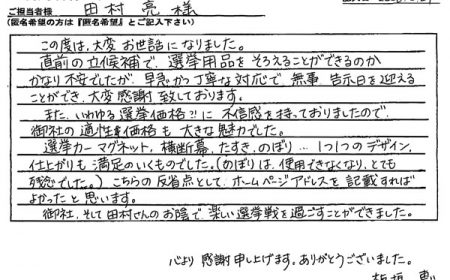 ご担当者様 田村 亮 様
(匿名希望の方は『匿名希望』とご記入下さい)
この度は、大変お世話になりました。
直前の立候補で、選挙用品をそろえることができるのか
かなり不安でしたが、早急かつ丁寧な対応で、無事 告示日を迎える
ことができ、大変感謝致しております。
また、いわゆる選挙価格?!に不信感を持っておりましたので、
御社の適性価格も大きな魅力でした。
選挙カーマグネット、横断幕、たすき、のぼり…1つ1つのデザイン、
仕上がりも満足のいくものでした。(のぼりは、使用できなくなり、とても
残念でした。)こちらの反省点として、ホームページアドレスを記載すれば
よかったと思います。
御社、そして田村さんのお陰で、楽しい選挙戦を過ごすことができました。
心より感謝申し上げます。ありがとうございました。